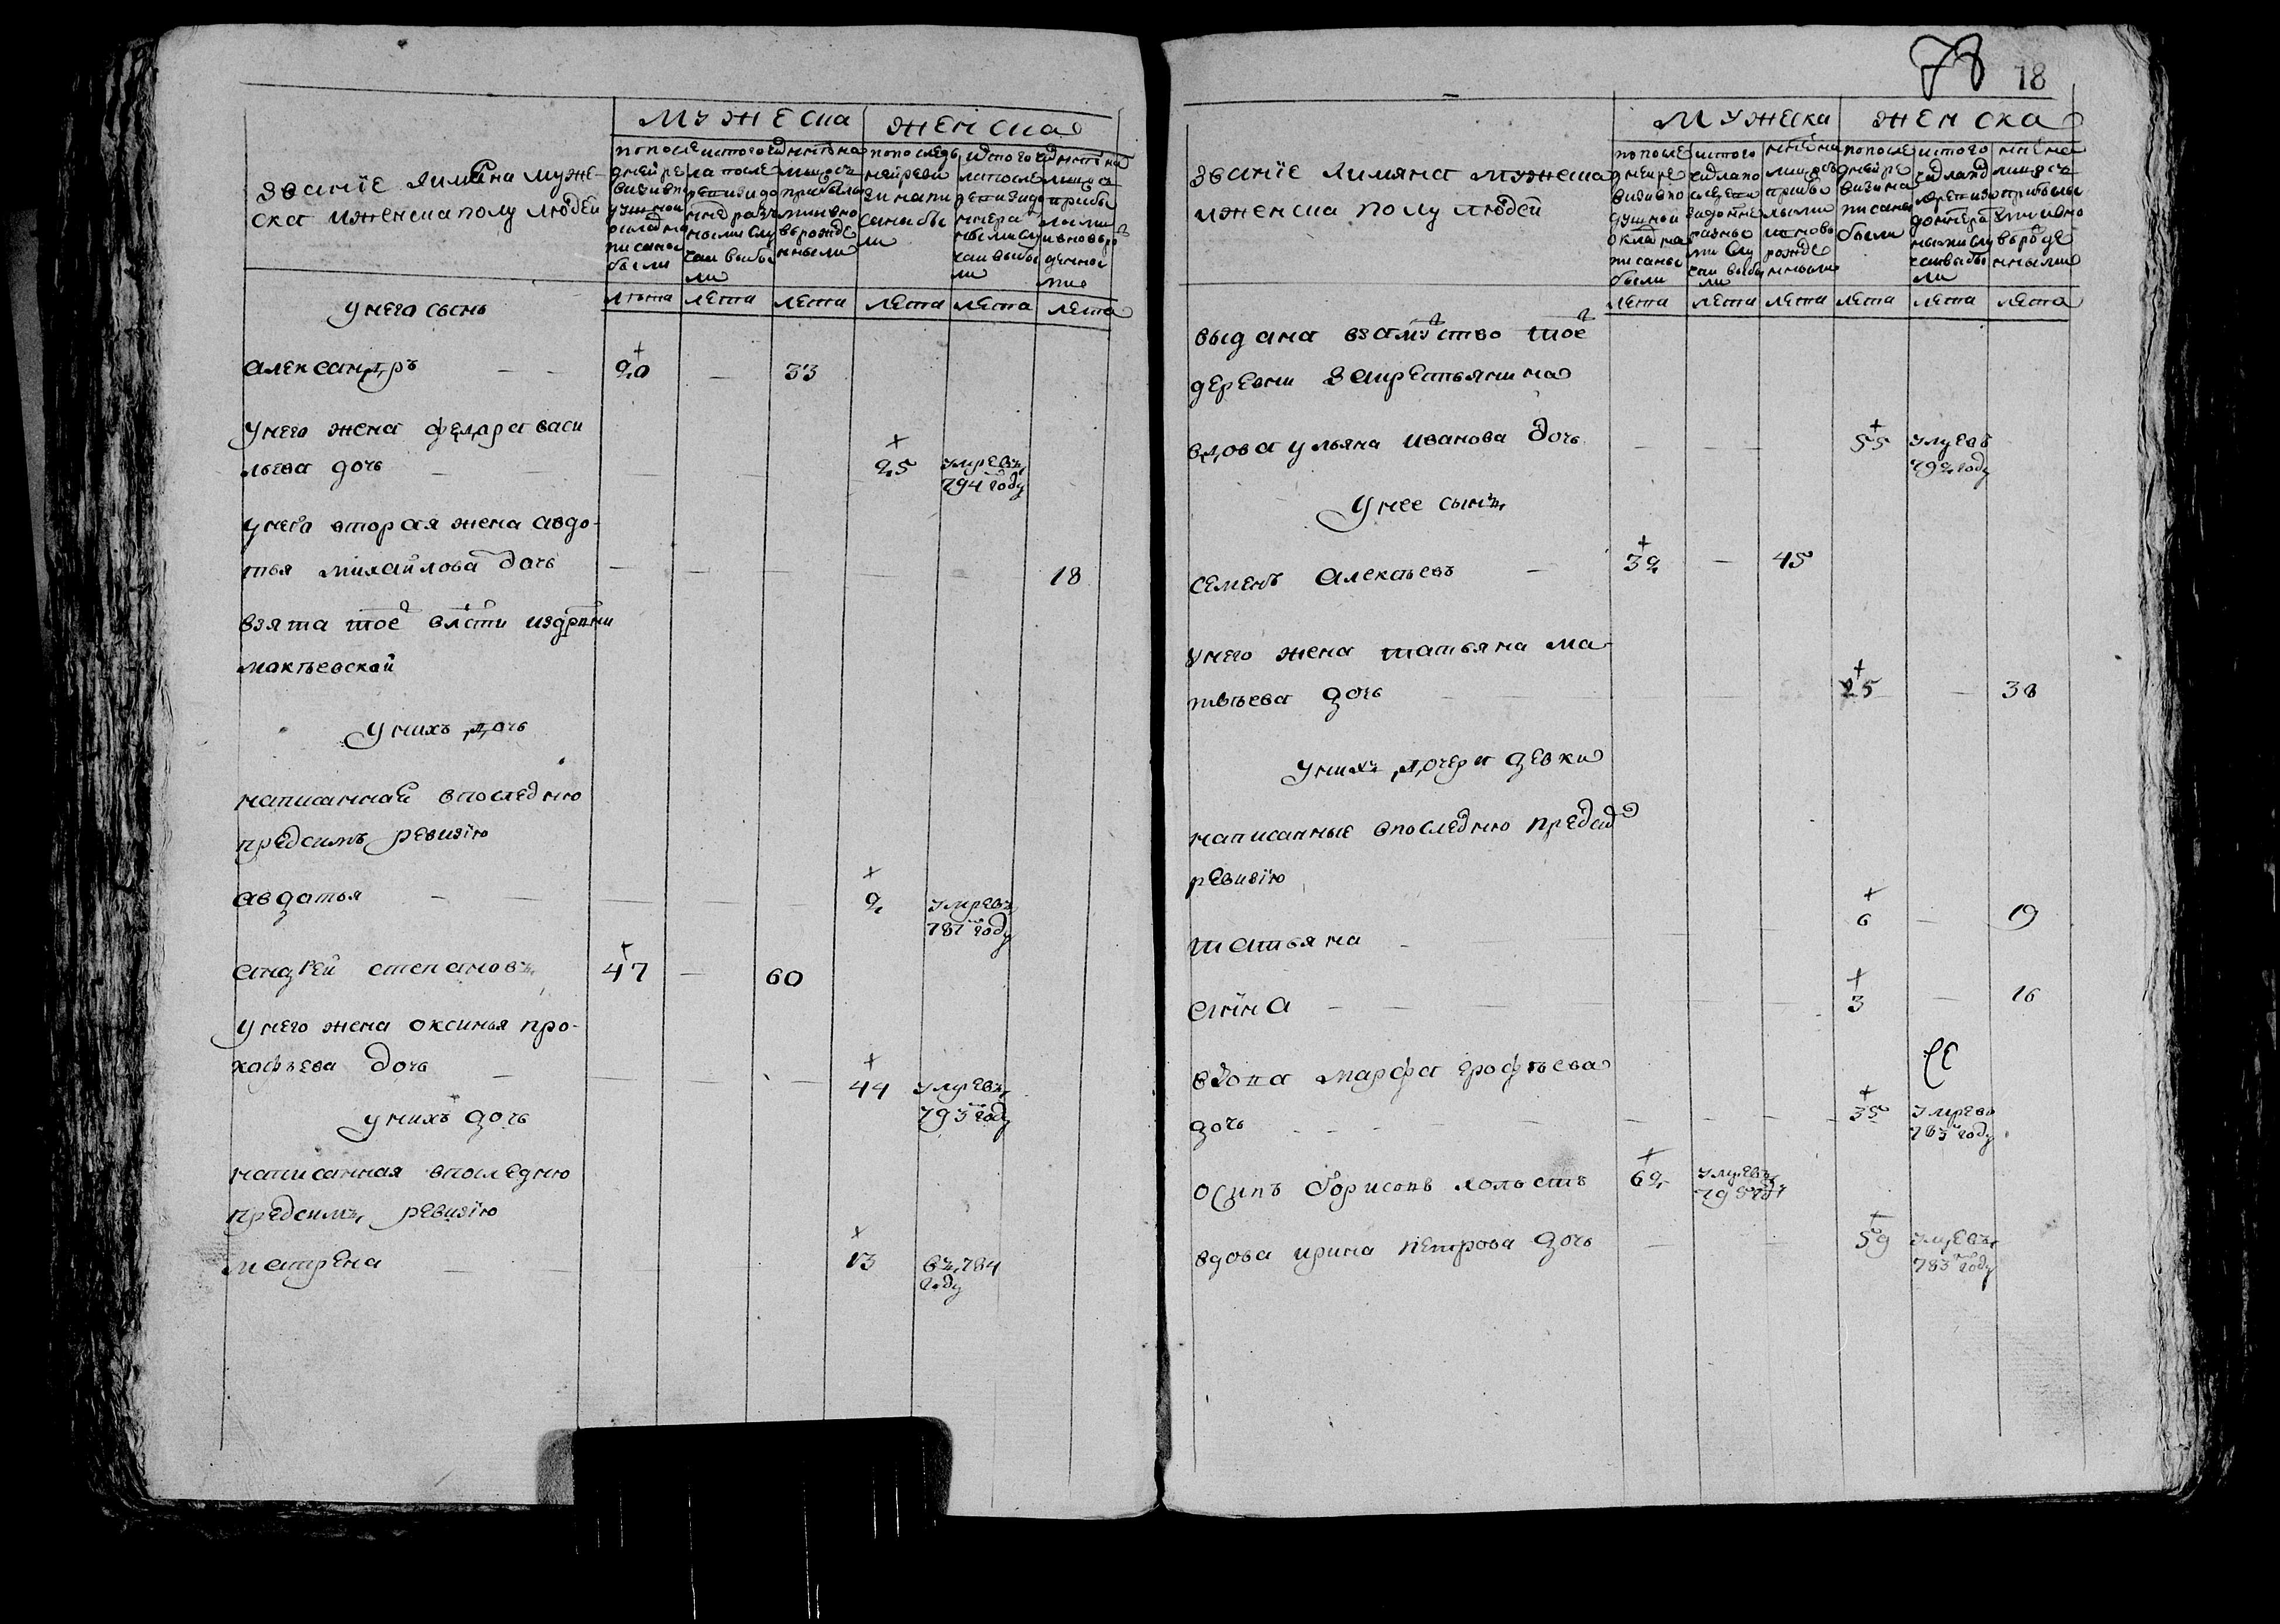 мужеска женска
званïе яимяна муже-
ска иженска полу людей
попосле
дней ре
визиивп
душной
оклад на
писаны
были
истого чи
ла после
ревизидо
нне разн
ными слу
чаи выбы
ли
ннѣ на
лицо съ
прибылы
мии вно
въ рожде
нными
попоследъ
ней реви
зи напи
саны бы
ли
истого чи
ла после
ревизидо
ннера
ными слу
чаи выбы
ли
ннѣ на
лицо с
прибы
лыми
ивновъро
жденны
ми
лѣта лета лета лета лета лета
унего сынъ
александръ — — 20 — 33
унего жена федора васи
льева дочь — 25 умревъ
794 году
унего вторая жена авдо-
тья михайлова дочь — — — — — 18
взята тое влсти издрвни
мокѣевской
унихъ дочь
написанная впоследнюю
предсимъ ревизïю
авдотья — — — — 2 умревъ
787 году
андрей степановъ 47 — 60
унего жена оксинья про-
кофьева дочь — — — 44 умревъ
793 году
унихъ дочь
написанная впоследнюю
предсимъ ревизïю
матрена — — — 13 въ 784
году
78 18
мужеска женска
званïе яимяна мужеска
иженска полу людей
попосле
дней ре
визивпо
душной
оклад на
писаны
были
истого
числапо
слереви
зидонне
разны
ми слу
чаи выбы
ли
ннѣ на
лицо съ
прибы
лыми
ивновь
рожде
нными
попосле
дней ре
визи на
писаны
были
истого
числапо
слеревизи
доннера
ными слу
чаивыбы
ли
ннѣ на
лицо съ
прибылы
ми ивно
въ рожде
нными
лета лета лета лета лета лета
выдана взамуство тое
деревни закрестьянина
вдова ульяна иванова дочь — — — 55 умревъ
792 году
унее сынъ
семенъ алексѣевъ — 32 — 45
унего жена татьяна ма-
твѣева дочь — — 25 — 38
унихъ дочери девки
написанные впоследнюю предсим
ревизïю
татьяна — — — — 6 — 19
анна — — — — 3 — 16
вдова марфа ерофѣева
дочь — — — — 35 умрева
783 году
осипъ борисовъ холостъ 62 умревъ
795 году
вдова ирина петрова дочь — — 59 умревъ
783 году